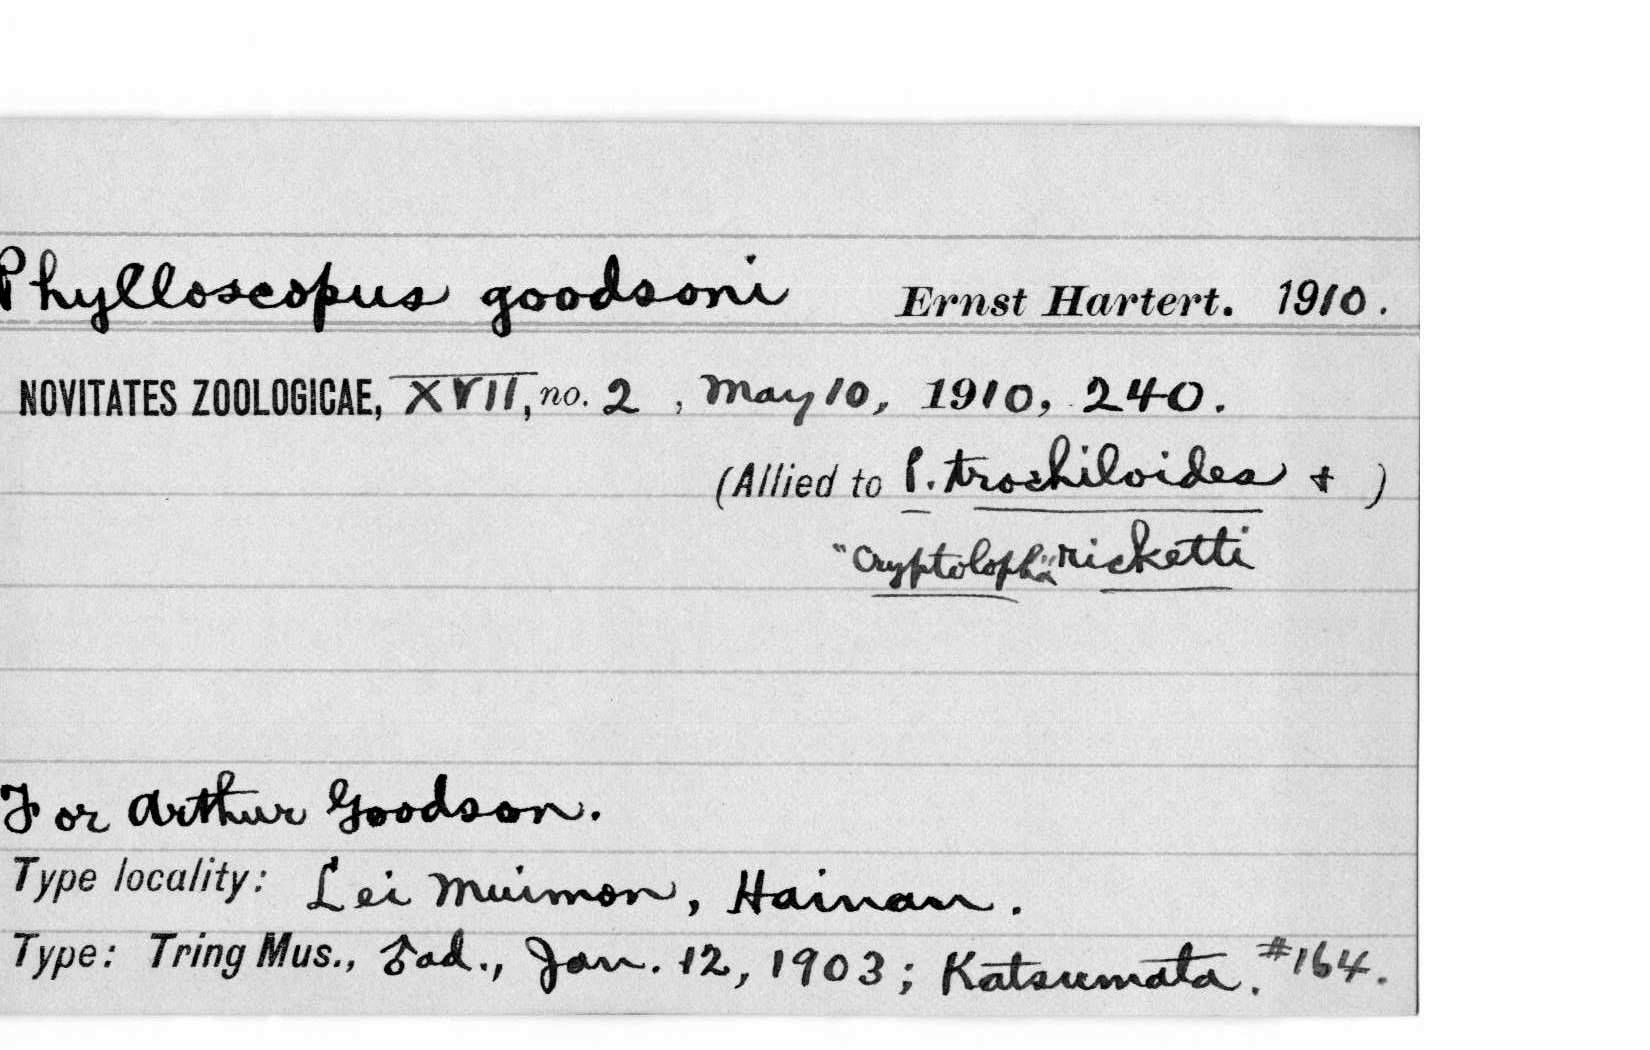 Phylloscopus goodsoni Ernst Hartert. 1910.
NOVITATES ZOOLOGICAE, XVII, no. 2, May 10, 1910, 240.
(Allied to P. trochiloides + )
"Cryptolopha" ricketti
For Arthur Goodson.
Type locality: Lei Muimon, Hainan.
Type: Tring Mus., ♂ad., Jan. 12, 1903; Katsumata. #164.